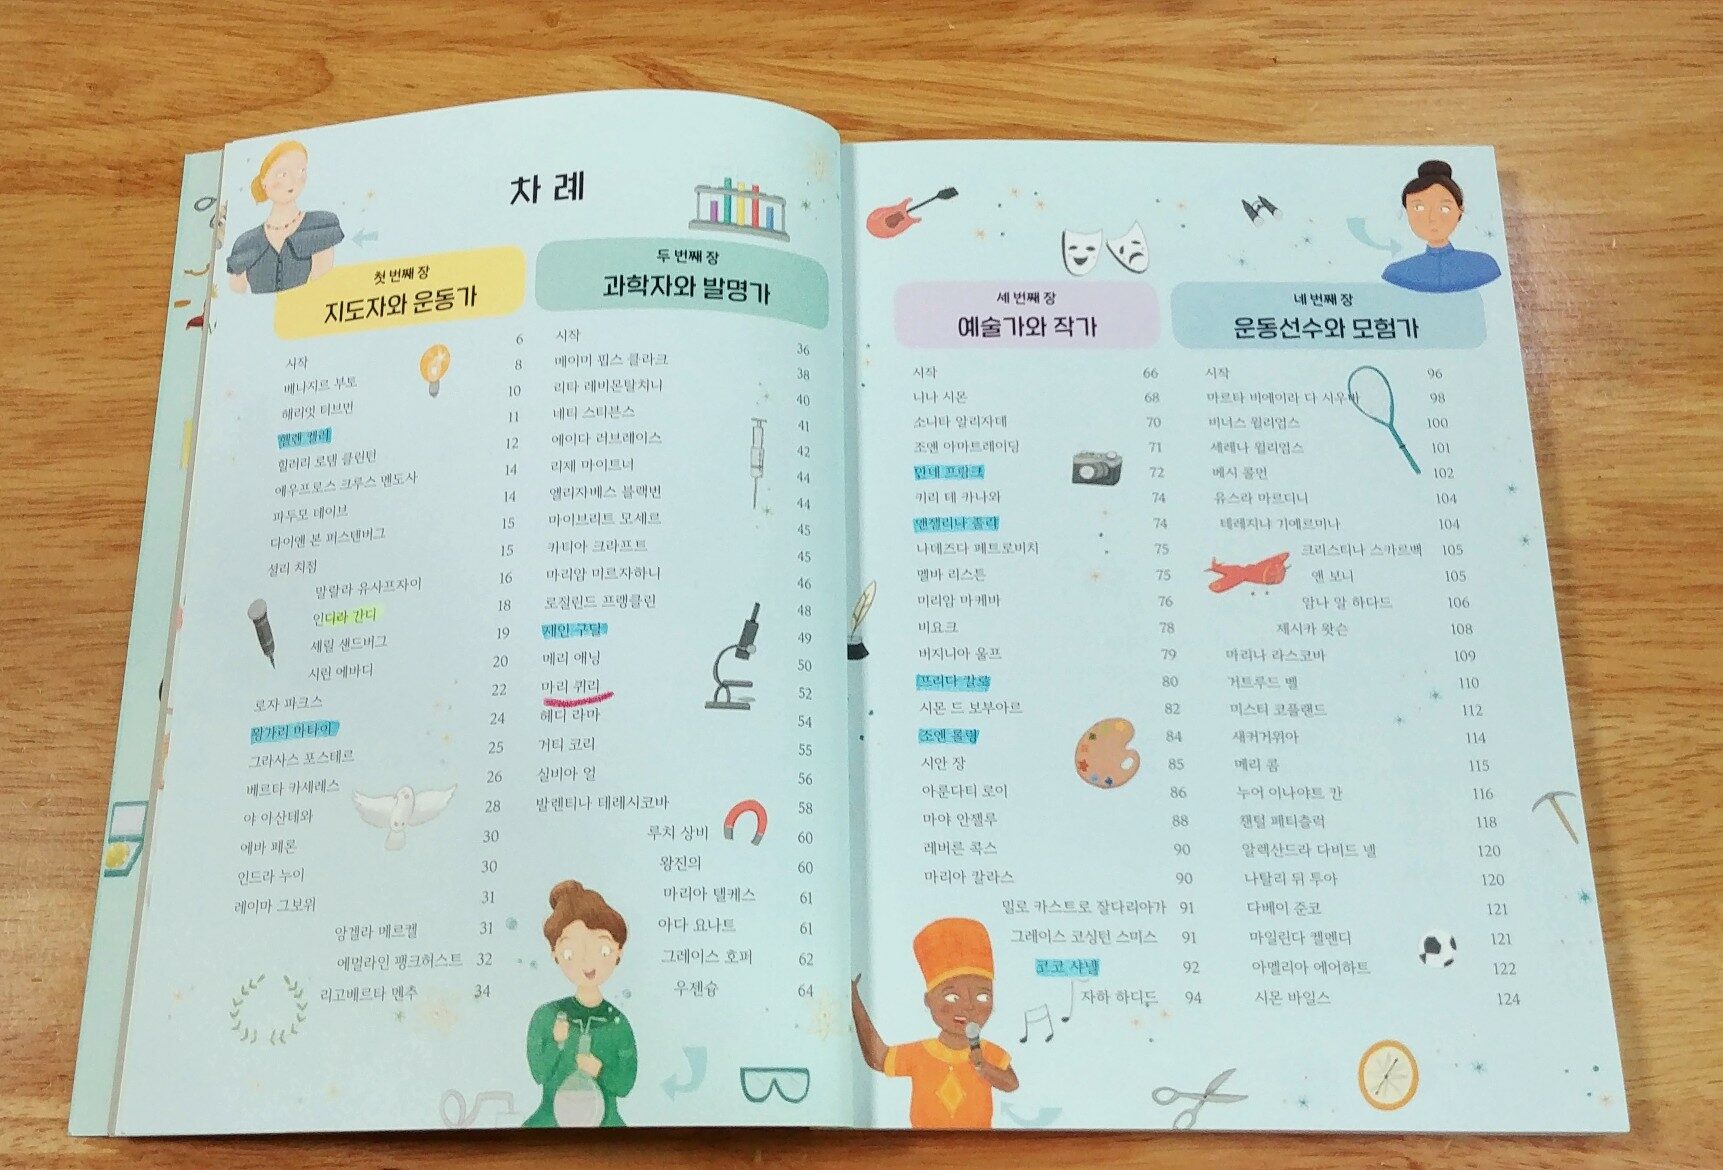 차례
첫 번째 장
지도자와 운동가
시작 6
베나지르 부토 8
해리엇 터브먼 10
헬렌 켈러 11
힐러리 로뎀 클린턴 12
에우프로스 크루스 멘도사 14
파두모 데이브 14
다이앤 본 퍼스텐버그 15
셜리 치점 15
말랄라 유사프자이 16
인디라 간디 18
셰릴 샌드버그 19
시린 에바디 20
로자 파크스 22
왕가리 마타이 24
그라사스 포스테르 25
베르타 카세레스 26
야 아산테와 28
에바 페론 30
인드라 누이 30
레이마 그보위 31
앙겔라 메르켈 31
에멀라인 팽크허스트 32
리고베르타 멘추 34
두 번째 장
과학자와 발명가
시작 36
메이미 핍스 클라크 38
리타 레비몬탈치니 40
네티 스티븐스 41
에이다 러브레이스 42
리제 마이트너 44
엘리자베스 블랙번 44
마이브리트 모세르 45
카티아 크라프트 45
마리암 미르자하니 46
로절린드 프랭클린 48
제인 구달 49
메리 애닝 50
마리 퀴리 52
헤디 라마 54
거티 코리 55
실비아 얼 56
발렌티나 테레시코바 58
루치 상비 60
왕진의 60
마리아 텔케스 61
아다 요나트 61
그레이스 호퍼 62
우젠슝 64
세 번째 장
예술가와 작가
시작 66
니나 시몬 68
소니타 알리자데 70
조앤 아마트레이딩 71
안네 프랑크 72
키리 테 카나와 74
앤젤리나 졸리 74
나데즈다 페트로비치 75
멜바 리스튼 75
미리암 마케바 76
비요크 78
버지니아 울프 79
프리다 칼로 80
시몬 드 보부아르 82
조앤 롤링 84
시안 장 85
아룬다티 로이 86
마야 안젤루 88
레버른 콕스 90
마리아 칼라스 90
밀로 카스트로 잘다리아가 91
그레이스 코싱턴 스미스 91
코코 샤넬 92
자하 하디드 94
네 번째 장
운동선수와 모험가
시작 96
마르타 비에이라 다 시우바 98
비너스 윌리엄스 100
세레나 윌리엄스 101
베시 콜먼 102
유스라 마르디니 104
테레지냐 기에르미나 104
크리스티나 스카르벡 105
앤 보니 105
암나 알 하다드 106
제시카 왓슨 108
마리나 라스코바 109
거트루드 벨 110
미스티 코플랜드 112
새커거위아 114
메리 콤 115
누어 이나야트 칸 116
챈털 페티츨럭 118
알렉산드라 다비드 넬 120
나탈리 뒤 투아 120
다베이 준코 121
마일린다 켈멘디 121
아멜리아 에어하트 122
시몬 바일스 124